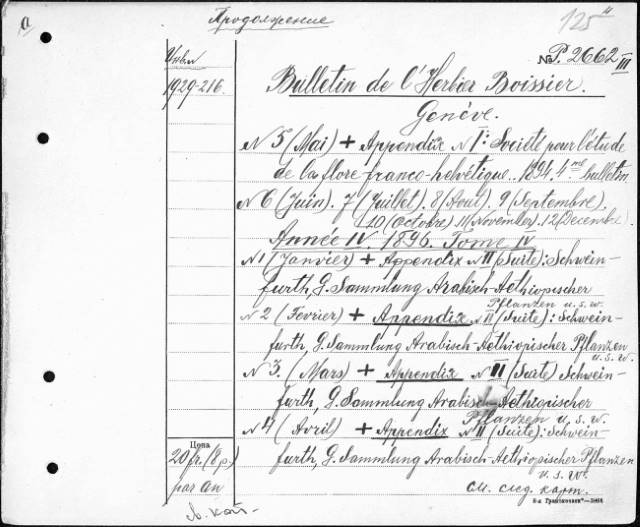 а
Продолжение
125
Инв. №
1929-216.
№ P. 2662 III
Bulletin de l'Herbier Boissier.
Genève.
N 5 (Mai) + Appendix N I: Société pour l'étude
de la flore franco-helvétique. 1894. 4me bulletin
N 6 (Juin). 7 (Juillet). 8 (Aout). 9 (Septembre).
10 (Octobre) 11 (November). 12 (Decembre)
Année IV. 1896. Tome IV
N 1 (Janvier) + Appendix N II (Suite): Schwein-
furth, G. Sammlung Arabisch-Aethiopischer
Pflanzen u. s. w.
N 2 (Février) + Appendix N II (Suite): Schwein-
furth, G. Sammlung Arabisch-Aethiopischer Pflanzen
u. s. w.
N 3. (Mars) + Appendix N III (Suite) Schwein-
furth, G. Sammlung Arabisch-Aethiopischer
Pflanzen u. s. w.
N 4 (Avril) + Appendix N II (Suite): Schwein-
furth, G. Sammlung Arabisch-Aethiopischer Pflanzen
u. s. w.
Цена
20 fr. (8 р.)
par an
см. след. карт.